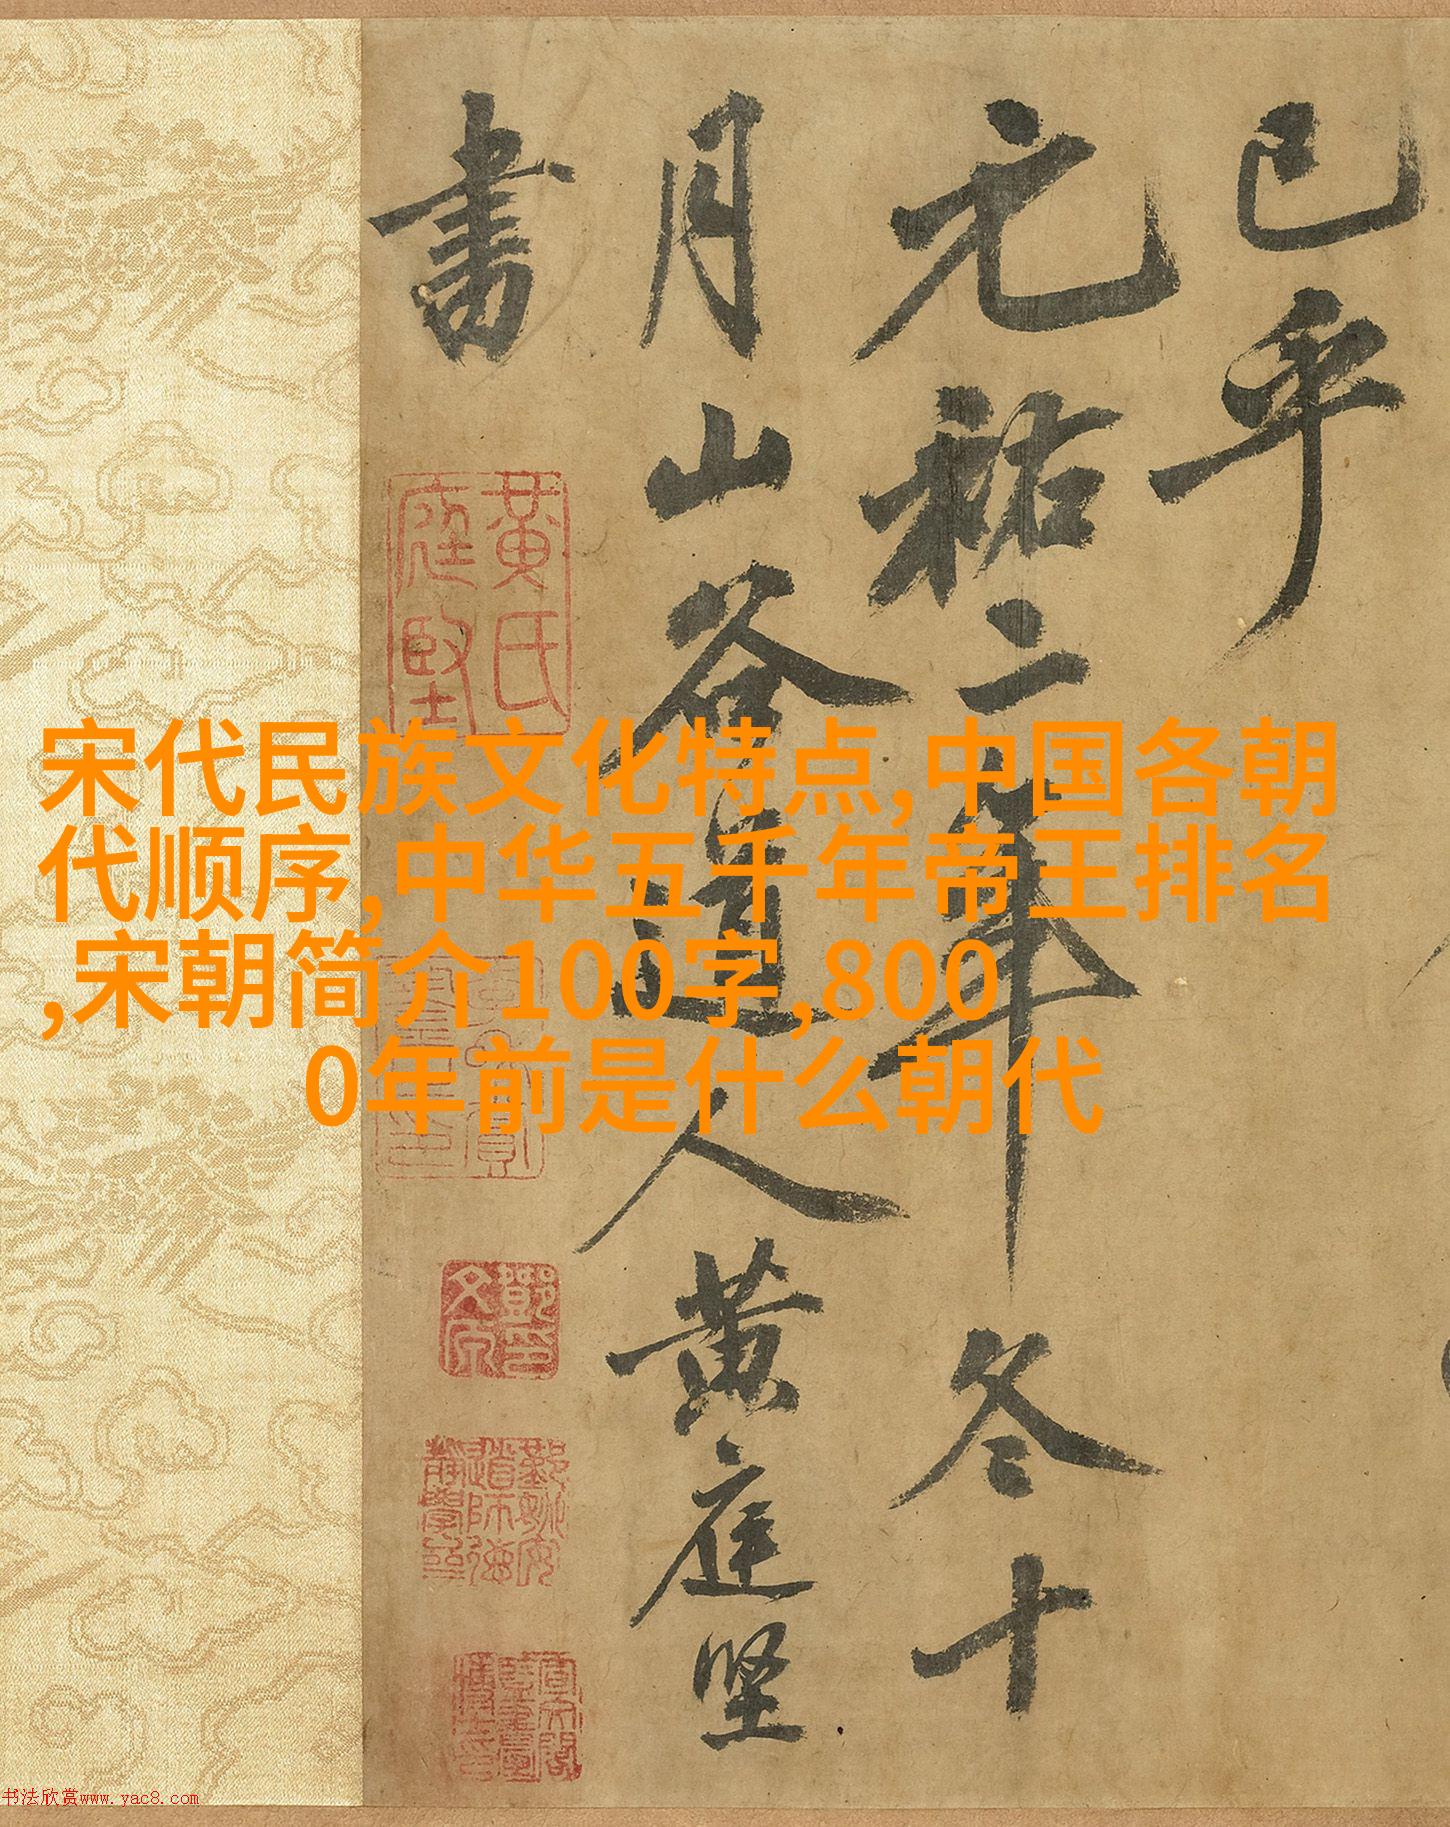 已乎
元祐二年冬十
月山谷道人黄庭坚
書
黄氏
庭堅
宋代民族文化特点,中国各朝
代顺序,中华五千年帝王排名
,宋朝简介100字,800
0年前是什么朝代
书法欣赏www.yac8.com